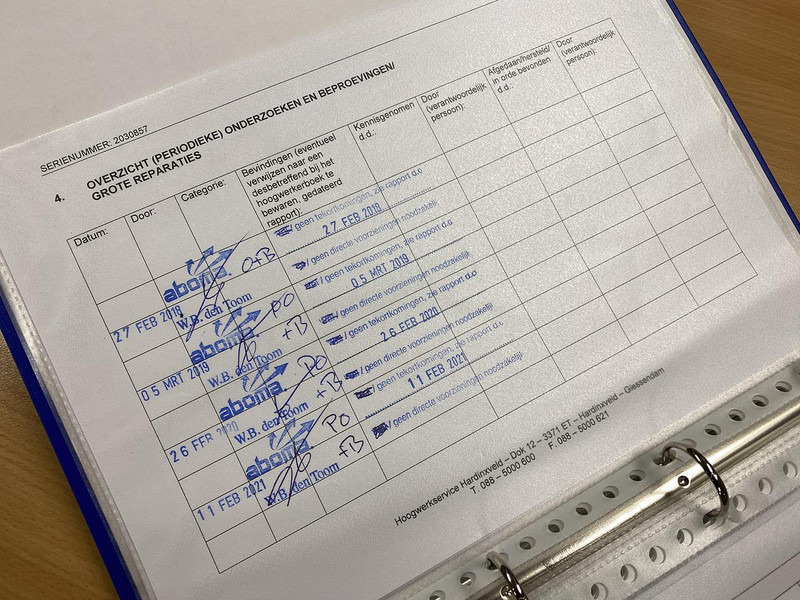 SERIENUMMER: 2030857
4. OVERZICHT (PERIODIEKE) ONDERZOEKEN EN BEPROEVINGEN/
GROTE REPARATIES
Datum:
Door:
Categorie:
Bevindingen (eventueel
verwijzen naar een
desbetreffend bij het
hoogwerkerboek te
bewaren, gedateerd
rapport):
Kennisgenomen
d.d.:
Door
(verantwoordelijk
persoon):
Afgedaan/hersteld/
in orde bevonden
d.d.:
Door
(verantwoordelijk
persoon):
27 FEB 2018
aboma
W.B. den Toom
O+B
/ geen tekortkomingen, zie rapport d.d
27 FEB 2018
/ geen directe voorzieningen noodzakelijk
05 MRT 2019
aboma
W.B. den Toom
PO
+B
/ geen tekortkomingen, zie rapport d.d
05 MRT 2019
/ geen directe voorzieningen noodzakelijk
26 FEB 2020
aboma
W.B. den Toom
PO
+B
/ geen tekortkomingen, zie rapport d.d
26 FEB 2020
/ geen directe voorzieningen noodzakelijk
11 FEB 2021
aboma
W.B. den Toom
PO
+B
/ geen tekortkomingen, zie rapport d.d.
11 FEB 2021
/ geen directe voorzieningen noodzakelijk
Hoogwerkservice Hardinxveld – Dok 12 – 3371 ET – Hardinxveld – Giessendam
T. 088 – 5000 600 F. 088 – 5000 621